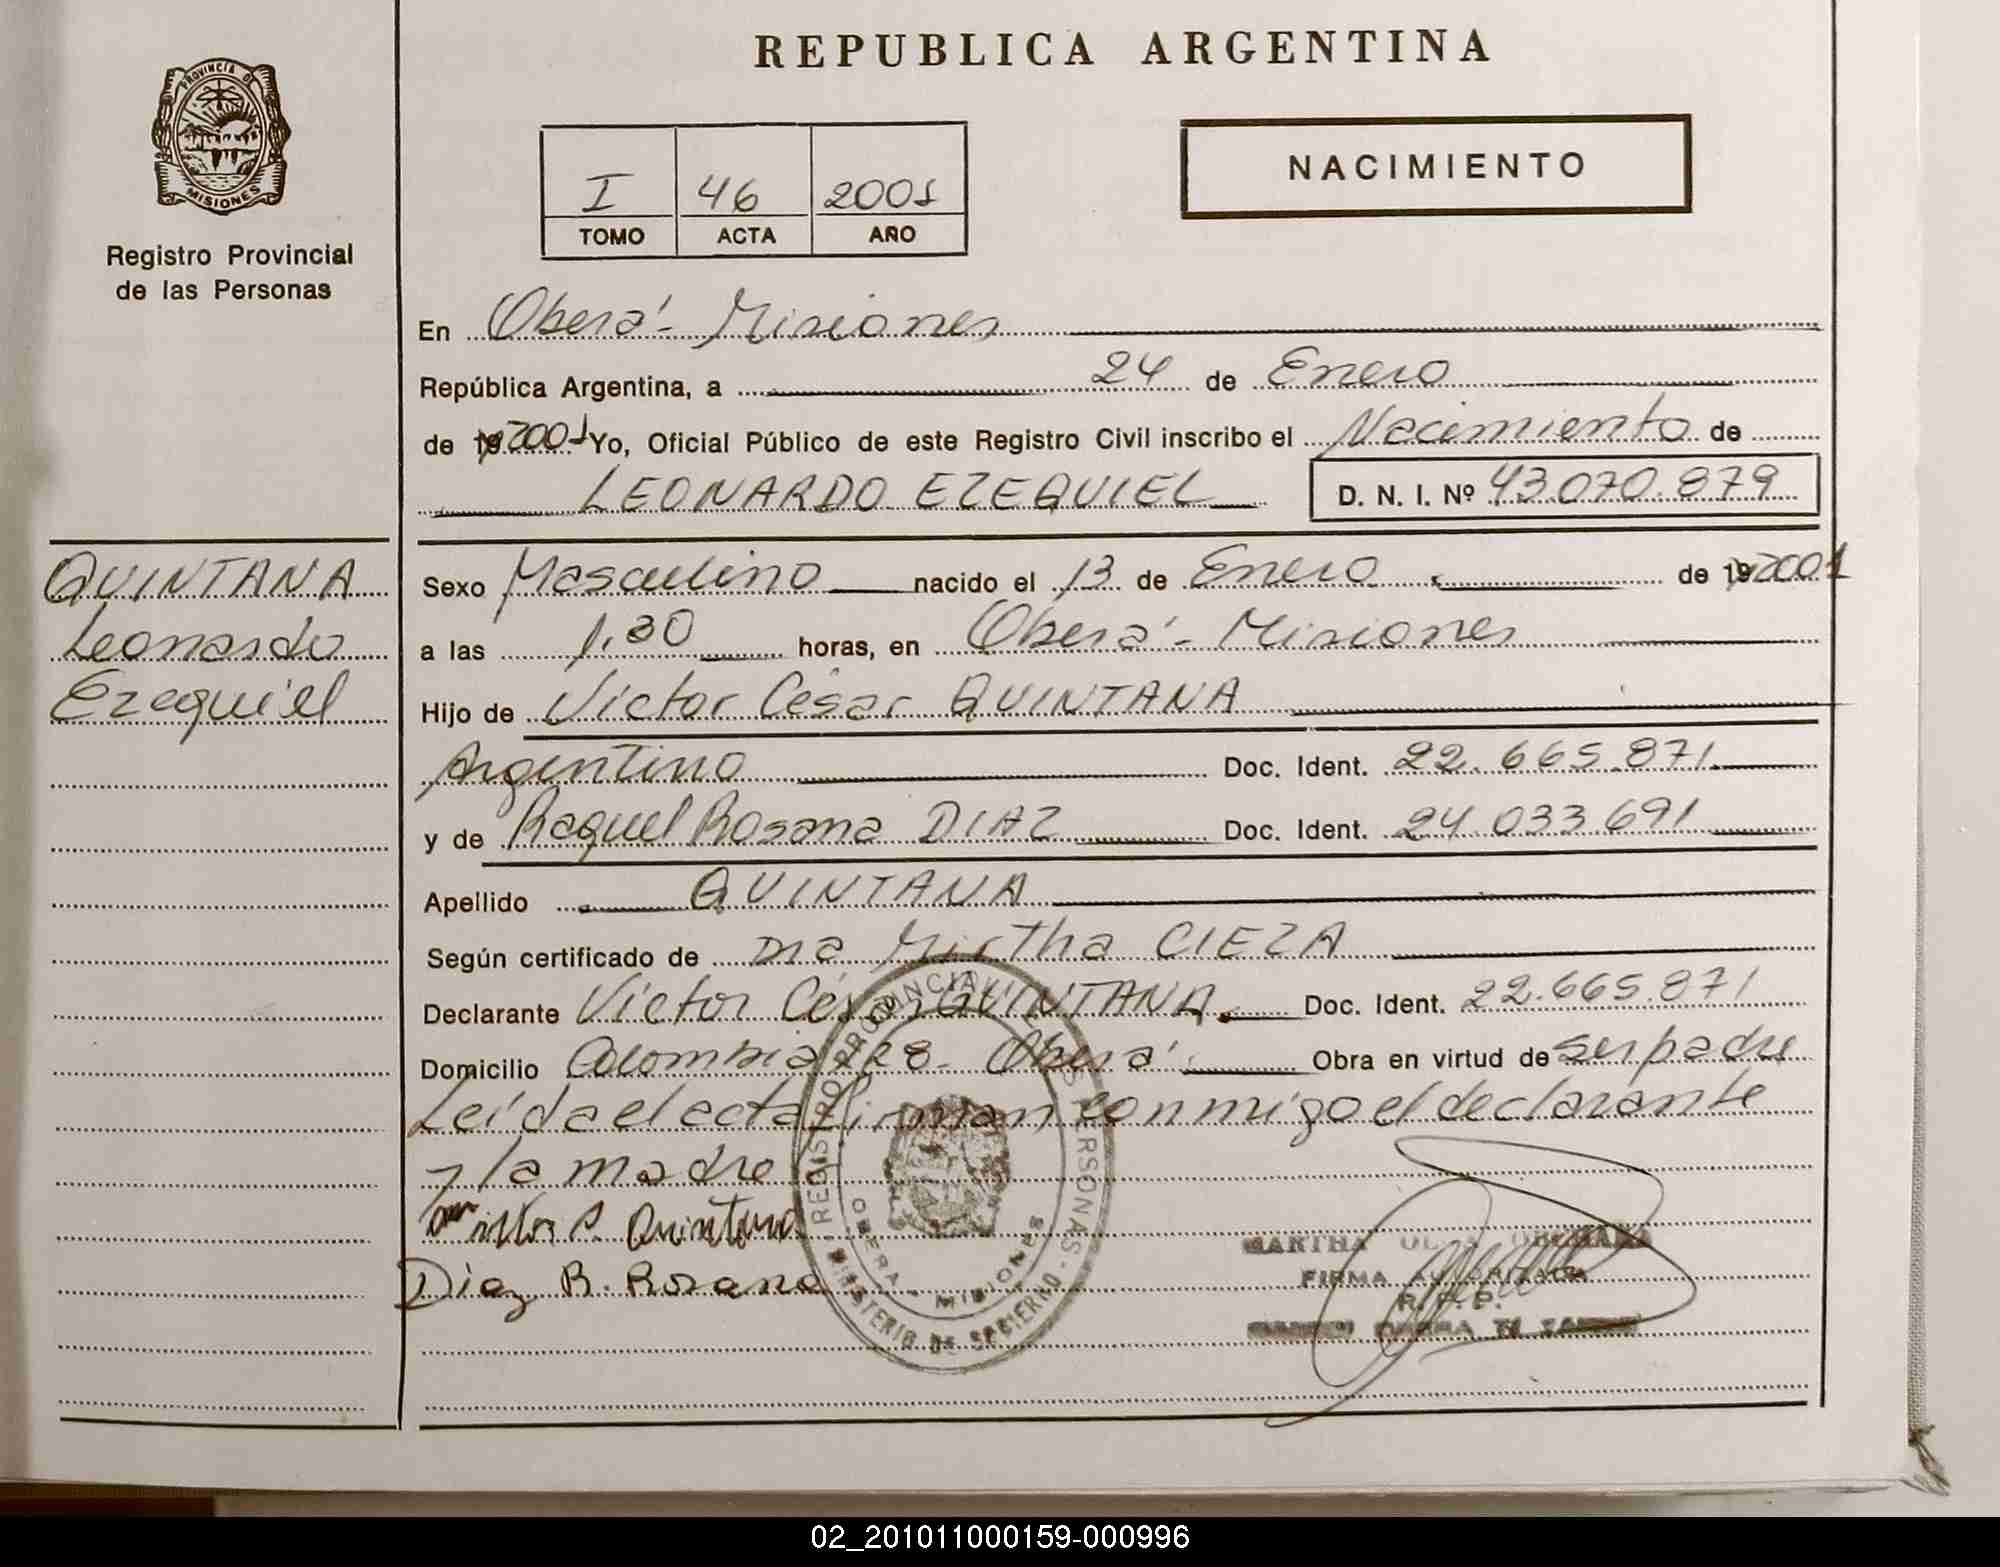 REPUBLICA ARGENTINA
PROVINCIA DE
MISIONES
Registro Provincial
de las Personas
I 46 2001
TOMO ACTA AÑO
NACIMIENTO
En Oberá - Misiones
República Argentina, a 24 de Enero
de 19 2001 Yo, Oficial Público de este Registro Civil inscribo el Nacimiento de
LEONARDO EZEQUIEL D. N. I. Nº 43.070.879
QUINTANA
Leonardo
Ezequiel
Sexo Masculino nacido el 13 de Enero de 19 2001
a las 1.30 horas, en Oberá - Misiones
Hijo de Víctor César QUINTANA
Argentino Doc. Ident. 22.665.871
y de Raquel Rosana DIAZ Doc. Ident. 24.033.691
Apellido QUINTANA
Según certificado de Mirtha CIEZA
Declarante Víctor César QUINTANA Doc. Ident. 22.665.871
Domicilio Colombia Oberá Obra en virtud de ser padre
Leída el acta firman conmigo el declarante
y la madre
Quintana
Diaz R. Rosana
REGISTRO PROVINCIAL DE LAS PERSONAS -
OBERA - MISIONES
MINISTERIO DE GOBIERNO -
FIRMA AUTORIZADA
R. P. P.
02_201011000159-000996